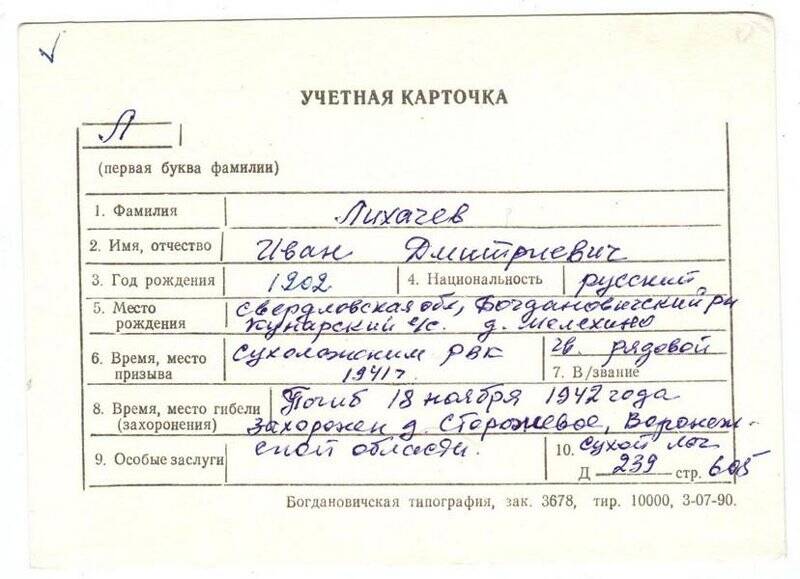 УЧЕТНАЯ КАРТОЧКА
Л
(первая буква фамилии)
1. Фамилия Лихачев
2. Имя, отчество Иван Дмитриевич
3. Год рождения 1902 4. Национальность русский
5. Место рождения Свердловская обл, Богдановичский рн
Кунарский с/с. д. Мелехино
6. Время, место призыва Сухоложским РВК
1941г
гв. рядовой
7. В/звание
8. Время, место гибели (захоронения) Погиб 18 ноября 1942 года
захоронен д. Сторожевое, Воронеж-
ской области.
9. Особые заслуги
10. Сухой Лог
Д 239 стр. 605
Богдановичская типография, зак. 3678, тир. 10000, 3-07-90.